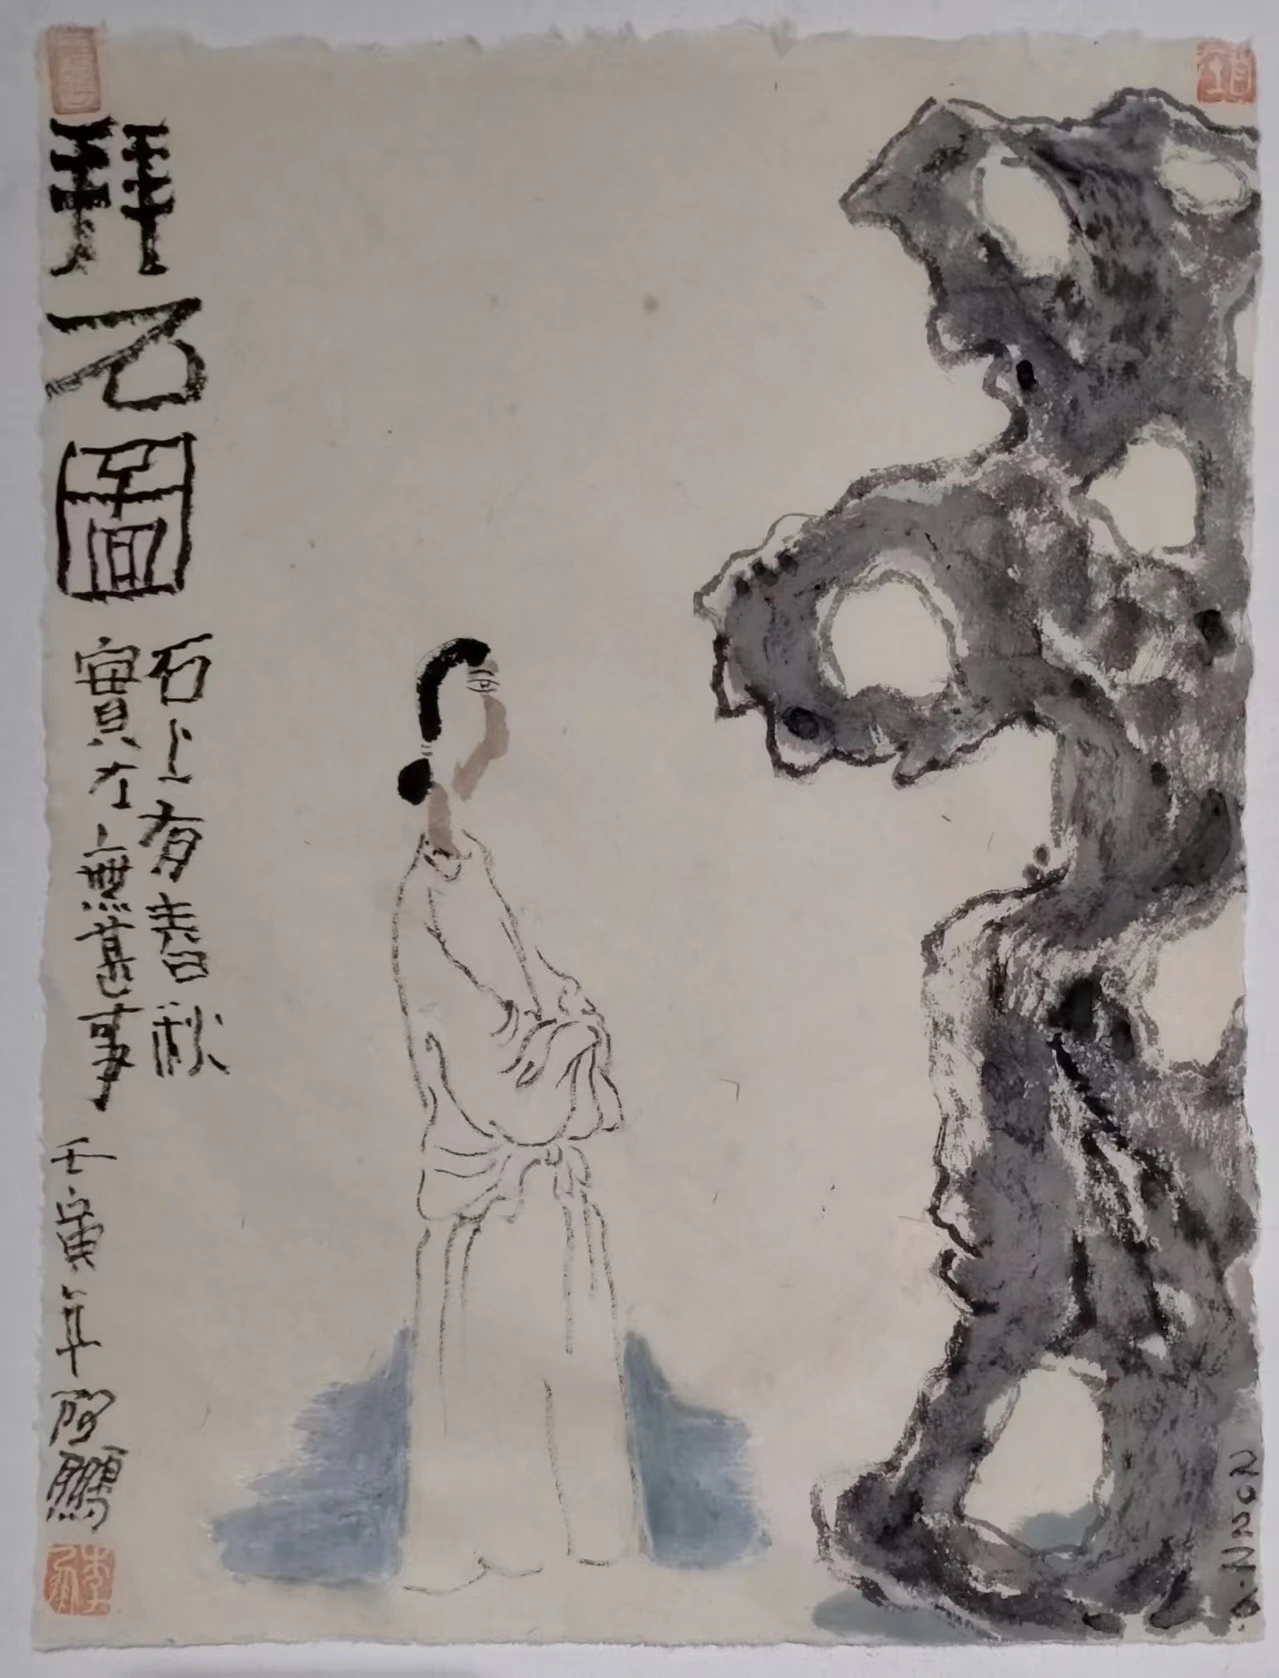 拜石圖
石上有春秋
實在無甚事
壬寅年阿鵬
2022.6.